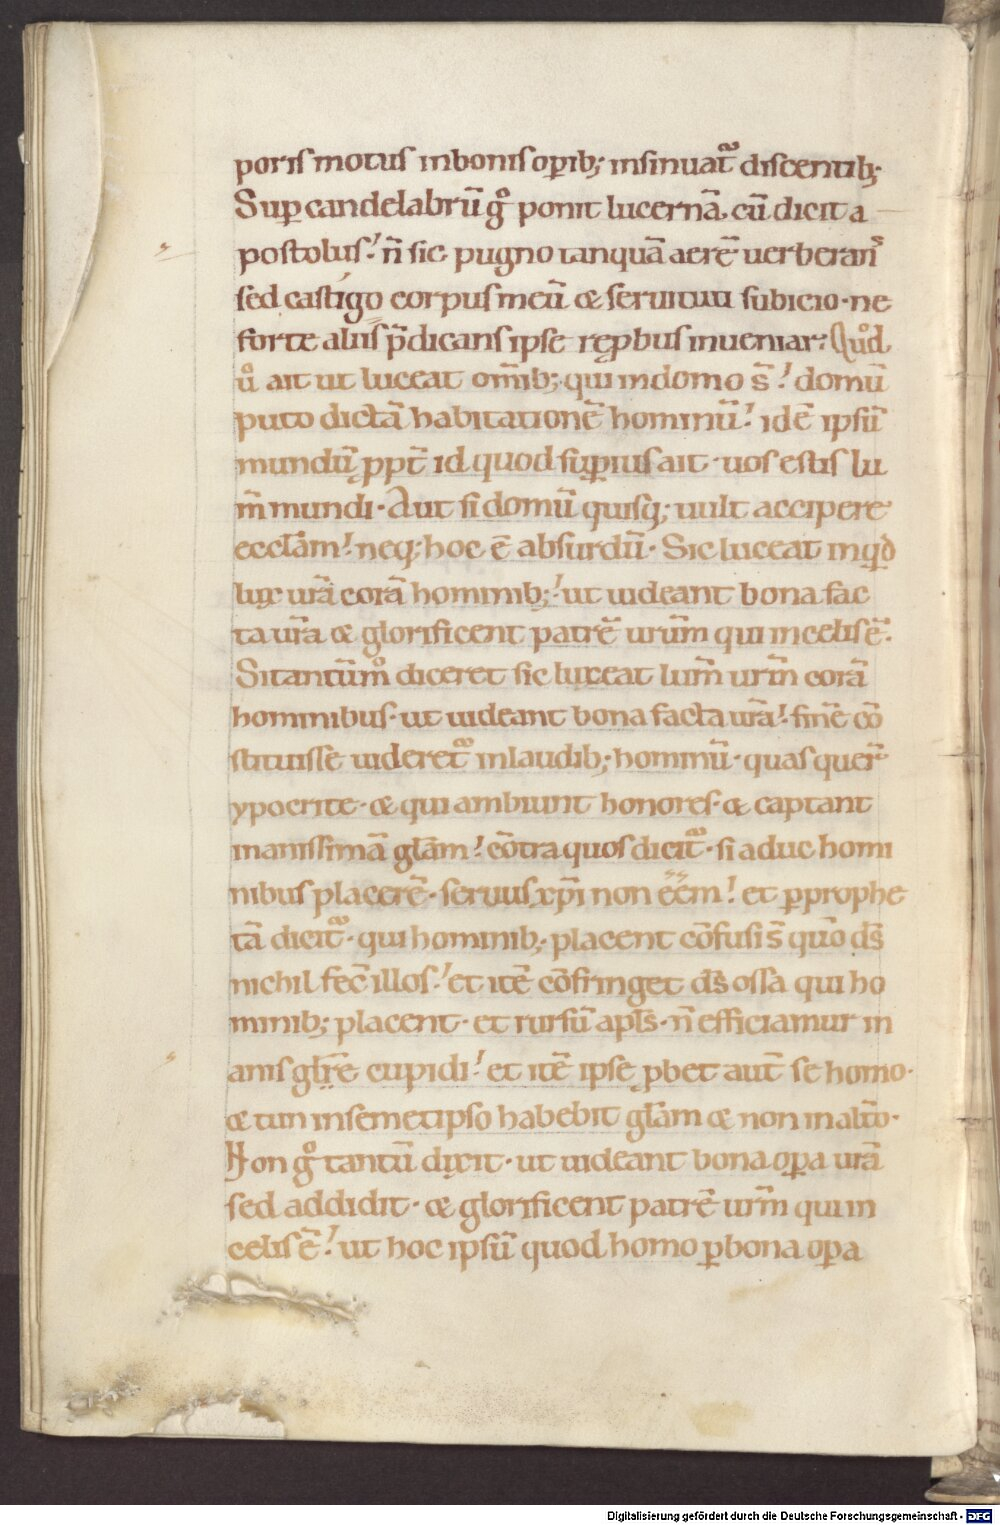 poris motus in bonis opib; insinuat᷑ discentib;
Sup candelabrū g° ponit lucernā, cū dicit a
postolus! n̄ sic pugno tanquā aerē uerberans̄
sed castigo corpus meū & seruituti subicio · ne
forte aliis p̄dicans ipse reꝓbus inueniar; Quod
ů ait ut luceat omīb; qui in domo s̄! domū
puto dictā habitationē hominū! idē ipsū
mundū ꝓpt̄ id quod suꝑius ait · uos estis lu
m̄ mundi · Aut si domū quisq; uult accipere
eccłam! neq; hoc ē absurdū · Sic luceat inqd
lux urā corā hominib;! ut uideant bona fac
ta ur̄a & glorificent patrē urūm qui in celis ē.
Si tantūm° diceret sic luceat lum̄ urm̄ corā
hominibus · ut uideant bona facta ur̄a! finē cō
stituisse uideret᷑ in laudib; hominū · quas quer̄
ypocrite · & qui ambiunt honores · & captant
inanissimā głam! cōtra quos dicit᷑ · si aduc homi
nibus placerē · seruus xp̄i non ēēm! et ꝑ prophe
tā dicit᷑ · qui hominib; placent cōfusi s̄ quō dš
nichil fec̄ illos! et itē cōfringet dš ossa qui ho
minib; placent · et rursū apłs · n̄ efficiamur in
anis glr̄e cupidi! et itē ipse ꝓbet aut̄ se homo ·
& tun in semetipso habebit głam & non in alt̄o ·
Non g° tantū dixit · ut uideant bona oꝑa urā
sed addidit · & glorificent patrē urm̄ qui in
celis ē! ut hoc ipsū quod homo ꝑ bona oꝑa
Digitalisierung gefördert durch die Deutsche Forschungsgemeinschaft - DFG